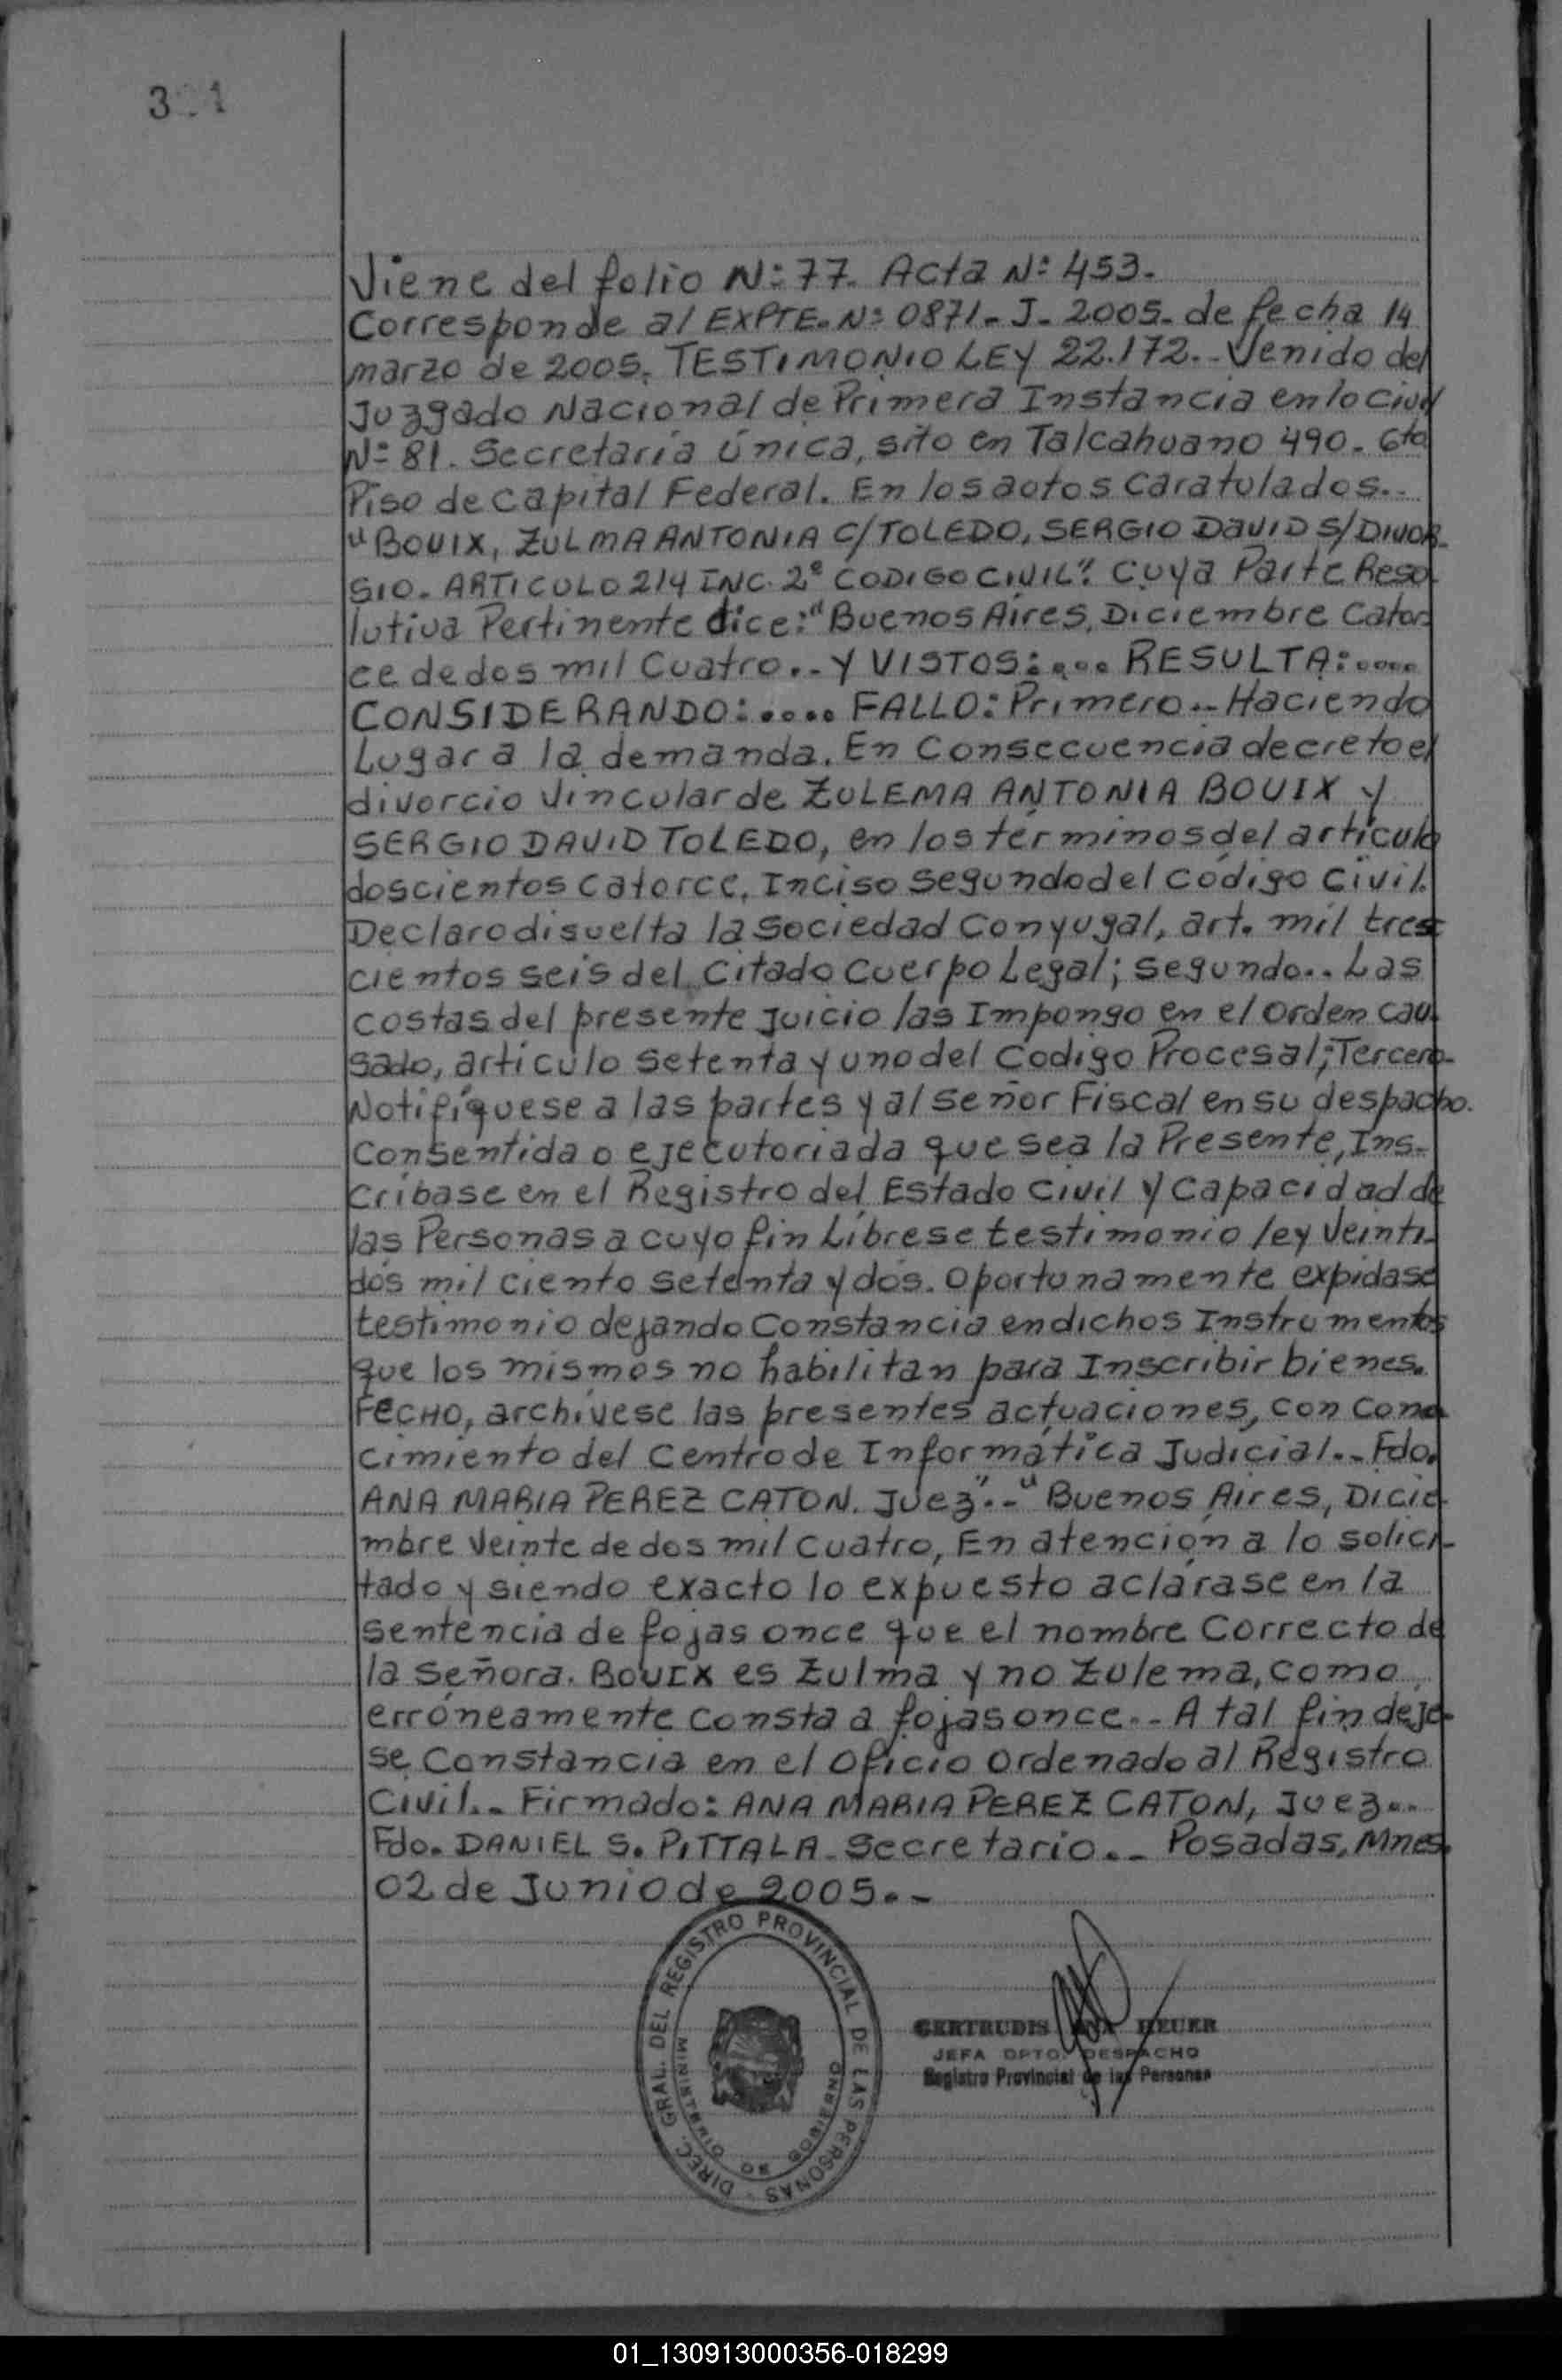 Viene del folio Nº 77. Acta Nº 453.
Corresponde al EXPTE. Nº 0871-J-2005- de fecha 14
marzo de 2005. TESTIMONIO LEY 22.172.- Venido del
Juzgado Nacional de Primera Instancia en lo Civil
Nº 81. Secretaría única, sito en Talcahuano 490. 6to
Piso de Capital Federal. En los autos caratulados.-
"BOUIX, ZULMA ANTONIA C/TOLEDO, SERGIO DAVID S/DIVOR-
SIO. ARTICULO 214 INC. 2º CODIGO CIVIL". Cuya Parte Reso-
lutiva Pertinente dice: "Buenos Aires, Diciembre Cator-
ce de dos mil Cuatro..- Y VISTOS:.... RESULTA:....
CONSIDERANDO:.... FALLO: Primero.- Haciendo
Lugar a la demanda. En Consecuencia decreto el
divorcio Vincular de ZULEMA ANTONIA BOUIX y
SERGIO DAVID TOLEDO, en los términos del artículo
doscientos catorce, Inciso segundo del código civil.
Declaro disuelta la Sociedad Conyugal, art. mil tres
cientos seis del Citado Cuerpo Legal; segundo.. Las
costas del presente juicio las Impongo en el orden cau-
sado, artículo setenta y uno del Codigo Procesal; Tercero-
Notifíquese a las partes y al señor Fiscal en su despacho.
Consentida o ejecutoriada que sea la Presente, Ins-
críbase en el Registro del Estado Civil y Capacidad de
las Personas a cuyo fin Líbrese testimonio ley Veinti-
dós mil ciento setenta y dós. Oportunamente expidase
testimonio dejando Constancia en dichos Instrumentos
que los mismos no habilitan para Inscribir bienes.
FECHO, archívese las presentes actuaciones, con Cono
cimiento del Centro de Informática Judicial..- Fdo.
ANA MARIA PEREZ CATON. Juez".-"Buenos Aires, Dicie-
mbre Veinte de dos mil Cuatro, En atención a lo solici-
tado y siendo exacto lo expuesto aclárase en la
sentencia de fojas once que el nombre Correcto de
la señora. BOUIX es Zulma y no Zulema, como
erróneamente Consta a fojas once.- A tal fin déje-
se Constancia en el Oficio Ordenado al Registro
Civil.- Firmado: ANA MARIA PEREZ CATON, Juez..
Fdo. DANIEL S. PITTALA - Secretario.- Posadas, Mnes.
02 de Junio de 2005.-
DIREC. GRAL. DEL REGISTRO PROVINCIAL DE LAS PERSONAS
MINISTERIO DE GOBIERNO
GERTRUDIS HEUER
JEFA DPTO. DESPACHO
Registro Provincial de las Personas
01_130913000356-018299